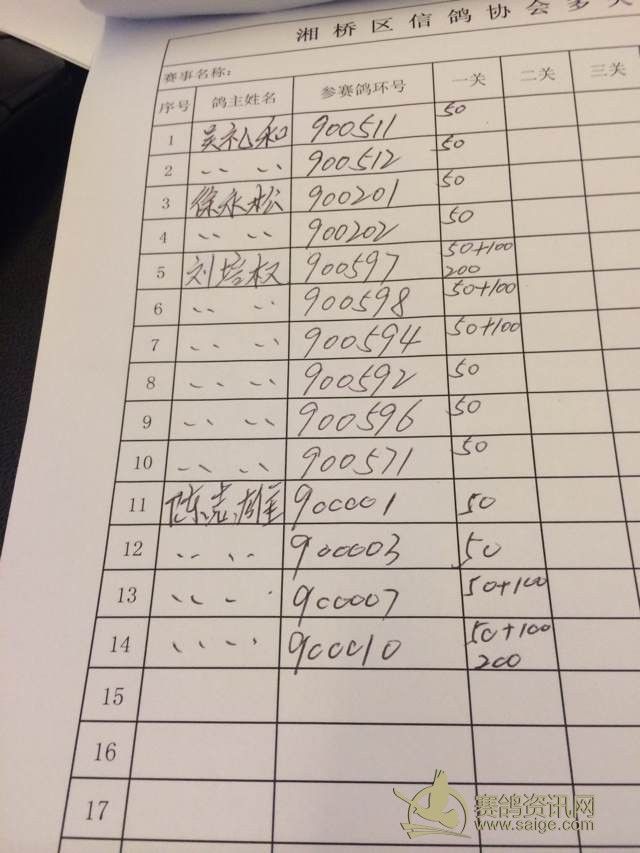 湘桥区信鸽协会多关
赛事名称:
序号 鸽主姓名 参赛鸽环号 一关 二关 三关
1 吴礼和 900511 50
2 〃 〃 900512 50
3 徐永松 900201 50
4 〃 〃 900202 50
5 刘培权 900597 50+100 200
6 〃 〃 900598 50+100
7 〃 〃 900594 50+100
8 〃 〃 900592 50
9 〃 〃 900596 50
10 〃 〃 900571 50
11 陈志雄 900001 50
12 〃 〃 900003 50
13 〃 〃 900007 50+100
14 〃 〃 900010 50+100 200
15
16
17
赛鸽资讯网
www.saige.com